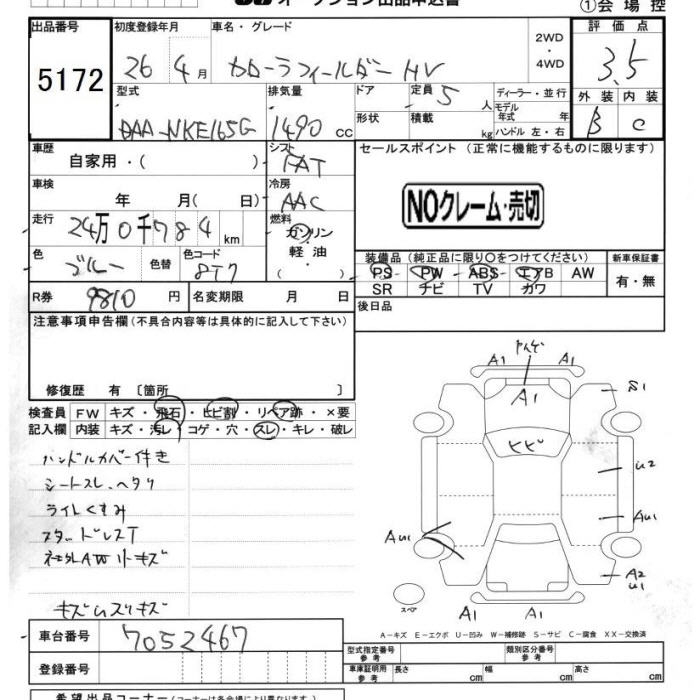 オークション出品申込書
①会場控
出品番号 初度登録年月 車名・グレード 評価点
5172 26 4月 カローラフィールダー HV 2WD ・4WD 3.5
型式 排気量 ドア 定員 ディーラー・並行 外装 内装
DAA-NKE165G 1490 CC 5人 モデル年式 年式 B C
形状 積載 kg ハンドル 左・右
車歴 自家用・( ) シフト FAT セールスポイント (正常に機能するものに限ります)
車検 年 月( 日) 冷房 AAC
NOクレーム・売切
走行 24万0千784 km 燃料 ガソリン
軽油・
( )
色 ブルー 色替 色コード 8T7
装備品 (純正品に限り○をつけてください) 新車保証書
PS PW ABS エアB AW 有・無
SR ナビ TV カワ
R券 9810 円 名変期限 月 日 後日品
注意事項申告欄(不具合内容等は具体的に記入して下さい)
修復歴 有 [箇所 ]
検査員 FW キズ・飛石・ヒビ割・リペア跡・×要
記入欄 内装 キズ・汚レ・コゲ・穴・スレ・キレ・破レ
ハンドルカバー付き
シートスレ、ヘタリ
ライトくすみ
スタッドレスT
社外AWリトキズ
キズムスリキズ
A1 A1
A1 S1
ヒビ
U2
AU1 AU1
A2
U1
スペア
A1 A1
A-キズ E-エクボ U-凹み W-補修跡 S-サビ C-腐食 XX-交換済
車台番号 7052467
型式指定番号 参考 類別区分番号 参考
登録番号 車庫証明用 参考 長さ cm 幅 cm 高さ cm
希望出品コーナー(コーナーは各会場により異なります)